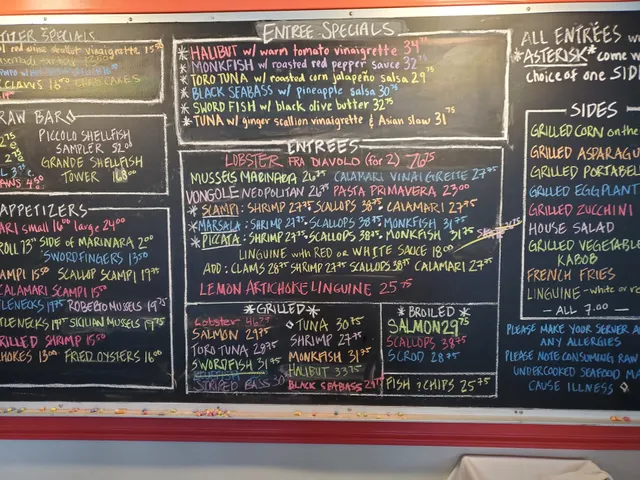 TIZER SPECIALS
red wine shallot vinaigrette 15.50
CLAWS 16.00 CRABCAKES
RAW BAR
PICCOLO SHELLFISH
SAMPLER 52.00
GRANDE SHELLFISH
TOWER 168.00
APPETIZERS
ARI small 16.00 large 24.00
ROLL 13.75 SIDE OF MARINARA 2.00
SWORDFINGERS 13.50
AMPI 15.50 SCALLOP SCAMPI 19.75
CALAMARI SCAMPI 15.50
TLENECKS 19.75 ROBERTO MUSSELS 19.75
TLENECKS 19.75 SICILIAN MUSSELS 19.75
GRILLED SHRIMP 15.50
CHOKES 13.00 FRIED OYSTERS 16.00
ENTREE SPECIALS
* HALIBUT w/ warm tomato vinaigrette 34.75
* MONKFISH w/ roasted red pepper sauce 32.75
TORO TUNA w/ roasted corn jalapeño salsa 29.75
* BLACK SEABASS w/ pineapple salsa 30.75
* SWORDFISH w/ black olive butter 32.75
* TUNA w/ ginger scallion vinaigrette & Asian slaw 31.75
ENTREES
LOBSTER FRA DIAVOLO (for 2) 76.75
MUSSELS MARINADA 26.75 CALAMARI VINAIGRETTE 27.75
VONGOLE NEOPOLITAN 26.75 PASTA PRIMAVERA 23.00
* SCAMPI: SHRIMP 27.75 SCALLOPS 38.75 CALAMARI 27.75
* MARSALA: SHRIMP 27.75 SCALLOPS 38.75 MONKFISH 31.75
* PICCATA: SHRIMP 27.75 SCALLOPS 38.75 MONKFISH 31.75
LINGUINE with RED or WHITE SAUCE 18.00
ADD: CLAMS 28.75 SHRIMP 27.75 SCALLOPS 38.75 CALAMARI 27.75
LEMON ARTICHOKE LINGUINE 25.75
*GRILLED*
Lobster 46.25
SALMON 29.75
TORO TUNA 28.75
SWORDFISH 31.75
STRIPED BASS 30
TUNA 30.75
SHRIMP 27.75
MONKFISH 31.75
HALIBUT 33.75
BLACK SEABASS 29.75
*BROILED*
SALMON 29.75
SCALLOPS 38.75
SCROD 28.75
FISH & CHIPS 25.75
ALL ENTRÉES w
*ASTERISK* come w
choice of one SID
SIDES
GRILLED CORN on the
GRILLED ASPARAGU
GRILLED PORTABEL
GRILLED EGGPLANT
GRILLED ZUCCHINI
HOUSE SALAD
GRILLED VEGETABLE
KABOB
FRENCH FRIES
LINGUINE - white or re
- ALL 7.00 -
PLEASE MAKE YOUR SERVER A
ANY ALLERGIES
PLEASE NOTE CONSUMING RAW
UNDERCOOKED SEAFOOD MA
CAUSE ILLNESS